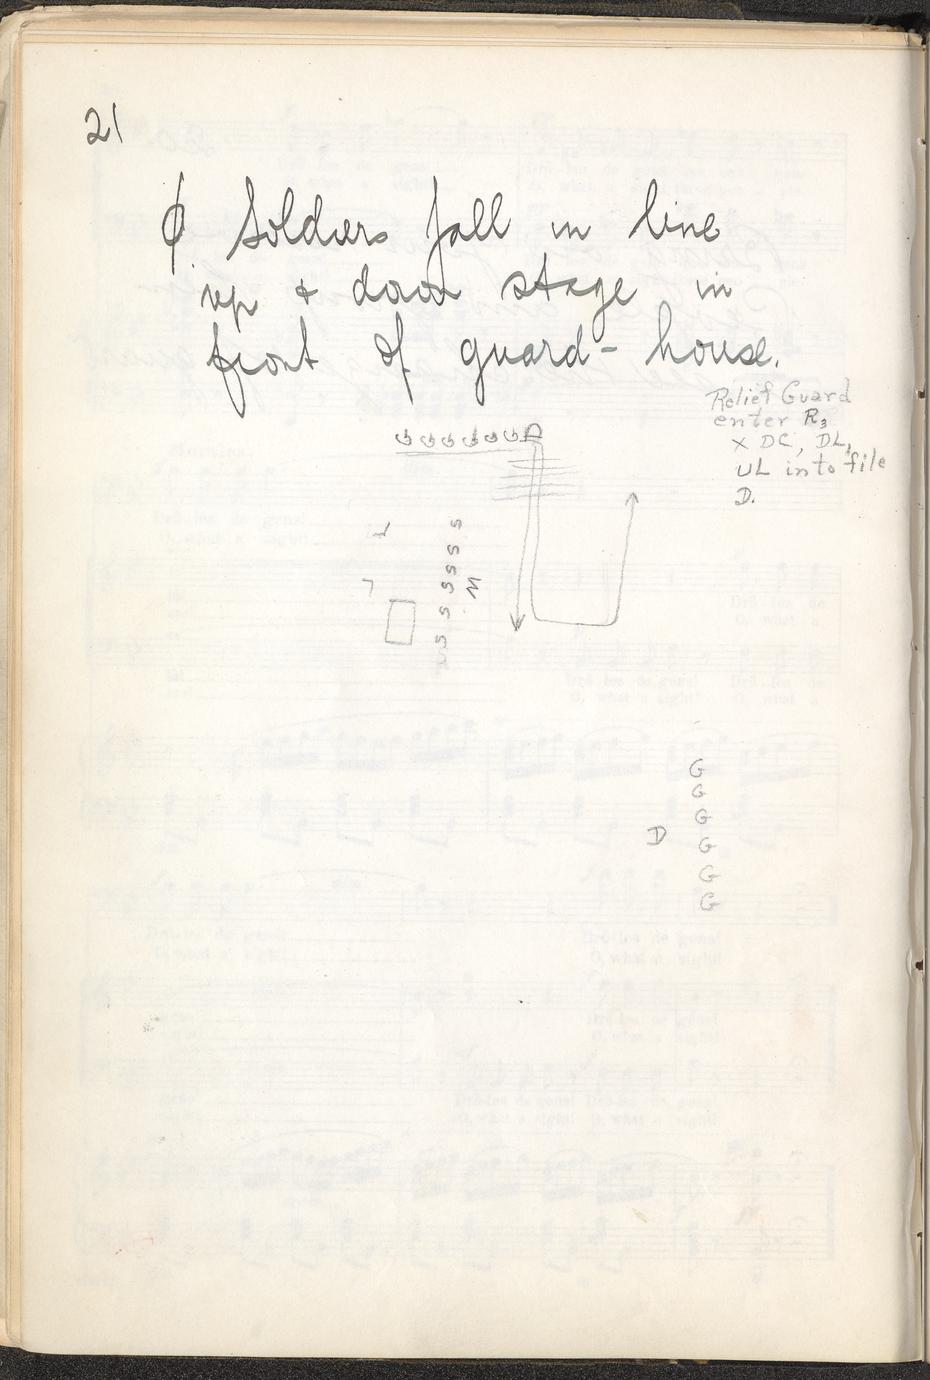 21
ϕ. Soldiers fall in line
up & down stage in
front of guard-house.
Relief Guard
enter R3
X DC, DL,
UL into file
D.
G G G G G D
S
S
S
S
S M
S
S
G
G
G
D G
G
G